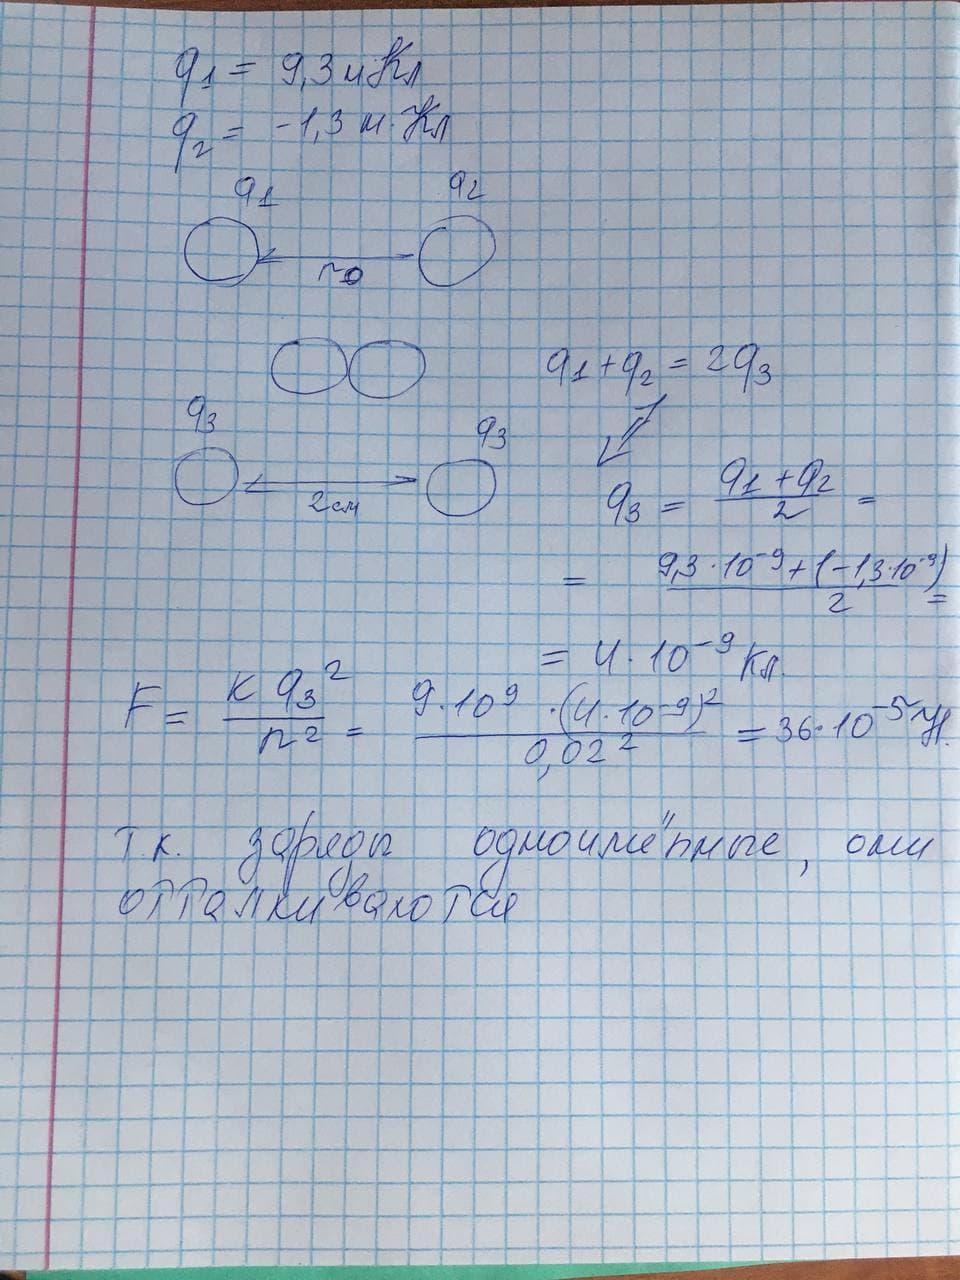 q₁ = 9,3 нКл
q₂ = -1,3 нКл
q1 q2
r0
q₁ + q₂ = 2q₃
q3 q3
2см
q₃ = (q₁ + q₂)/2 =
= (9,3·10⁻⁹ + (-1,3·10⁻⁹))/2 =
= 4·10⁻⁹ Кл.
F = kq₃²/r² = 9·10⁹·(4·10⁻⁹)²/0,02² = 36·10⁻⁵ Н.
т.к. заряды одноимённые, они
отталкиваются